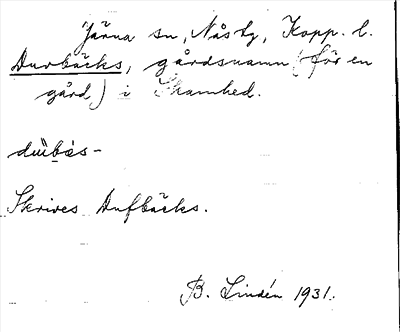 Järna sn, Nåsby, Kopp. l.
Duvbäcks, gårdsnamn (för en
gård) i Skamhed.
Skrives Dufbäcks.
B. Lindén 1931.